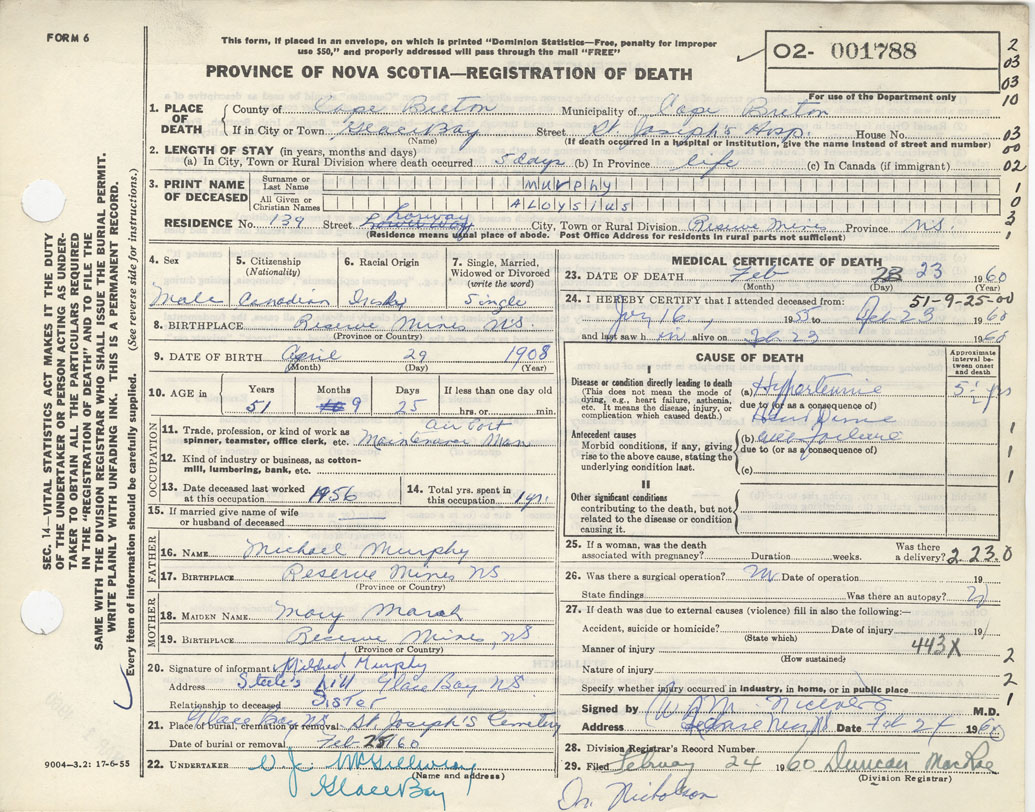 FORM 6
This form, if placed in an envelope, on which is printed "Dominion Statistics—Free, penalty for improper
use $50," and properly addressed will pass through the mail "FREE"
O2- 001788
For use of the Department only
PROVINCE OF NOVA SCOTIA—REGISTRATION OF DEATH
2
03
03
10
03
00
02
1
0
3
1
1. PLACE OF DEATH
County of Cape Breton Municipality of Cape Breton
If in City or Town Glace Bay Street St. Joseph's Hosp. House No.
(Name) (If death occurred in a hospital or institution, give the name instead of street and number)
2. LENGTH OF STAY (in years, months and days)
(a) In City, Town or Rural Division where death occurred 5 days (b) In Province life (c) In Canada (if immigrant)
3. PRINT NAME OF DECEASED
Surname or Last Name murphy
All Given or Christian Names ALOYSIUS
RESIDENCE No. 139 Street Lorway City, Town or Rural Division Reserve Mines Province NS.
(Residence means usual place of abode. Post Office Address for residents in rural parts not sufficient)
4. Sex
Male
5. Citizenship (Nationality)
Canadian
6. Racial Origin
Irish
7. Single, Married, Widowed or Divorced (write the word)
Single
8. BIRTHPLACE Reserve Mines NS.
(Province or Country)
9. DATE OF BIRTH April 29 1908
(Month) (Day) (Year)
10. AGE in Years Months Days If less than one day
51 9 25 hrs. or min.
OCCUPATION
11. Trade, profession, or kind of work as spinner, teamster, office clerk, etc. Air Port Maintenance Man
12. Kind of industry or business, as cotton-mill, lumbering, bank, etc.
13. Date deceased last worked at this occupation 1956
14. Total yrs. spent in this occupation 1 yr.
15. If married give name of wife or husband of deceased
FATHER
16. NAME Michael Murphy
17. BIRTHPLACE Reserve Mines NS
(Province or Country)
MOTHER
18. MAIDEN NAME Mary Marsh
19. BIRTHPLACE Reserve Mines, NS
(Province or Country)
20. Signature of informant Mildred Murphy
Address Steele's Hill Glace Bay NS
Relationship to deceased Sister
21. Place of burial, cremation or removal Glace Bay NS St. Joseph's Cemetery
Date of burial or removal Feb 25/60
22. UNDERTAKER V. J. McGillivray
(Name and address)
Glace Bay
9004-3.2: 17-6-55
MEDICAL CERTIFICATE OF DEATH
23. DATE OF DEATH Feb 23 1960
(Month) (Day) (Year)
51-9-25-00
24. I HEREBY CERTIFY that I attended deceased from:
1955 to Feb 23 1960
and last saw him alive on Feb 23 1960
CAUSE OF DEATH
Approximate interval between onset and death
I
Disease or condition directly leading to death
(This does not mean the mode of dying, e.g., heart failure, asthenia, etc. It means the disease, injury, or complication which caused death.)
(a) Hypertensive 5 yrs
due to (or as a consequence of)
Heart Disease
Antecedent causes
Morbid conditions, if any, giving rise to the above cause, stating the underlying condition last.
(b) failure
due to (or as a consequence of)
(c)
II
Other significant conditions
contributing to the death, but not related to the disease or condition causing it.
1
1
1
25. If a woman, was the death associated with pregnancy? Duration weeks. Was there a delivery?
2 23.0
26. Was there a surgical operation? No Date of operation 19
State findings Was there an autopsy?
27. If death was due to external causes (violence) fill in also the following:—
Accident, suicide or homicide? Date of injury 19
(State which)
Manner of injury 443X
(How sustained)
Nature of injury
Specify whether injury occurred in industry, in home, or in public place
2
2
1
Signed by M.D.
Address Reserve Mines NS Date Feb 24 1960
28. Division Registrar's Record Number
29. Filed February 24 1960 Duncan MacRae
(Division Registrar)
Dr. Nicholson
SEC. 14—VITAL STATISTICS ACT MAKES IT THE DUTY
OF THE UNDERTAKER OR PERSON ACTING AS UNDER-
TAKER TO OBTAIN ALL THE PARTICULARS REQUIRED
IN THE "REGISTRATION OF DEATH" AND TO FILE THE
SAME WITH THE DIVISION REGISTRAR WHO SHALL ISSUE THE BURIAL PERMIT.
WRITE PLAINLY WITH UNFADING INK. THIS IS A PERMANENT RECORD.
Every item of information should be carefully supplied. (See reverse side for instructions.)